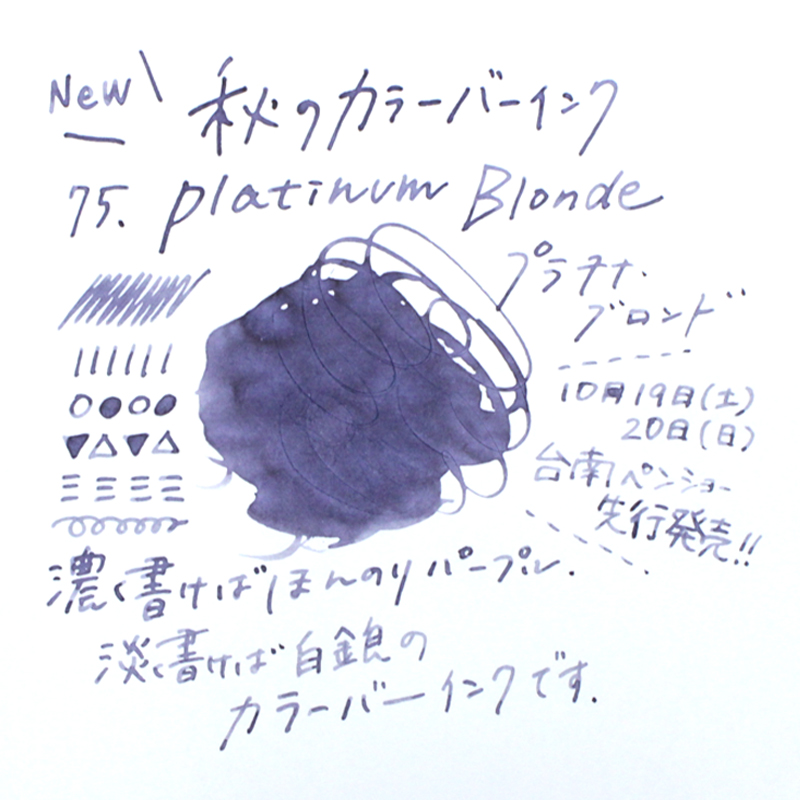 New
秋のカラーバーインク
75. Platinum Blonde
プラチナ
ブロンド
10月19日(土)
20日(日)
台南ペンショー
先行発売!!
濃く書けばほんのりパープル.
淡く書けば白銀の
カラーバーインクです.